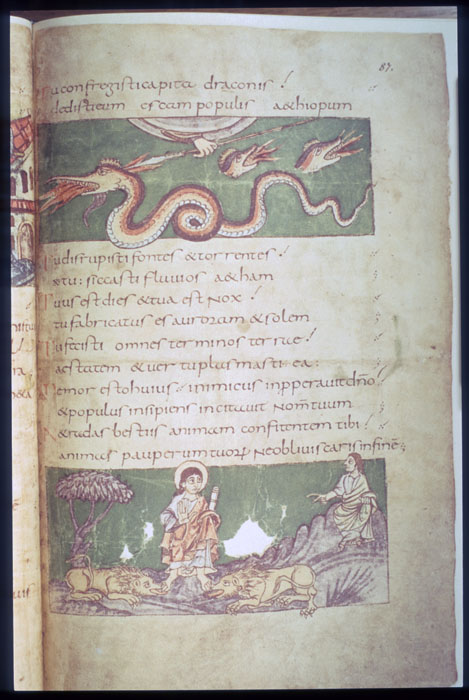 87.
u confregisti capita draconis!
dedisti eum escam populis a&hiopum
u dirupisti fontes & torrentes!
tu: siccasti fluuios a&ham
uus est dies & tua est nox!
tu fabricatus es auroram & solem
u fecisti omnes terminos terrae!
aestatem & uer tu plasmasti ea:
emor esto huius inimicus inpperauit dño
& populus insipiens incitauit nom̄ tuum
tradas bestiis animam confitentem tibi!
animas pauperum tuorꝝ ne obliuiscaris in finē;